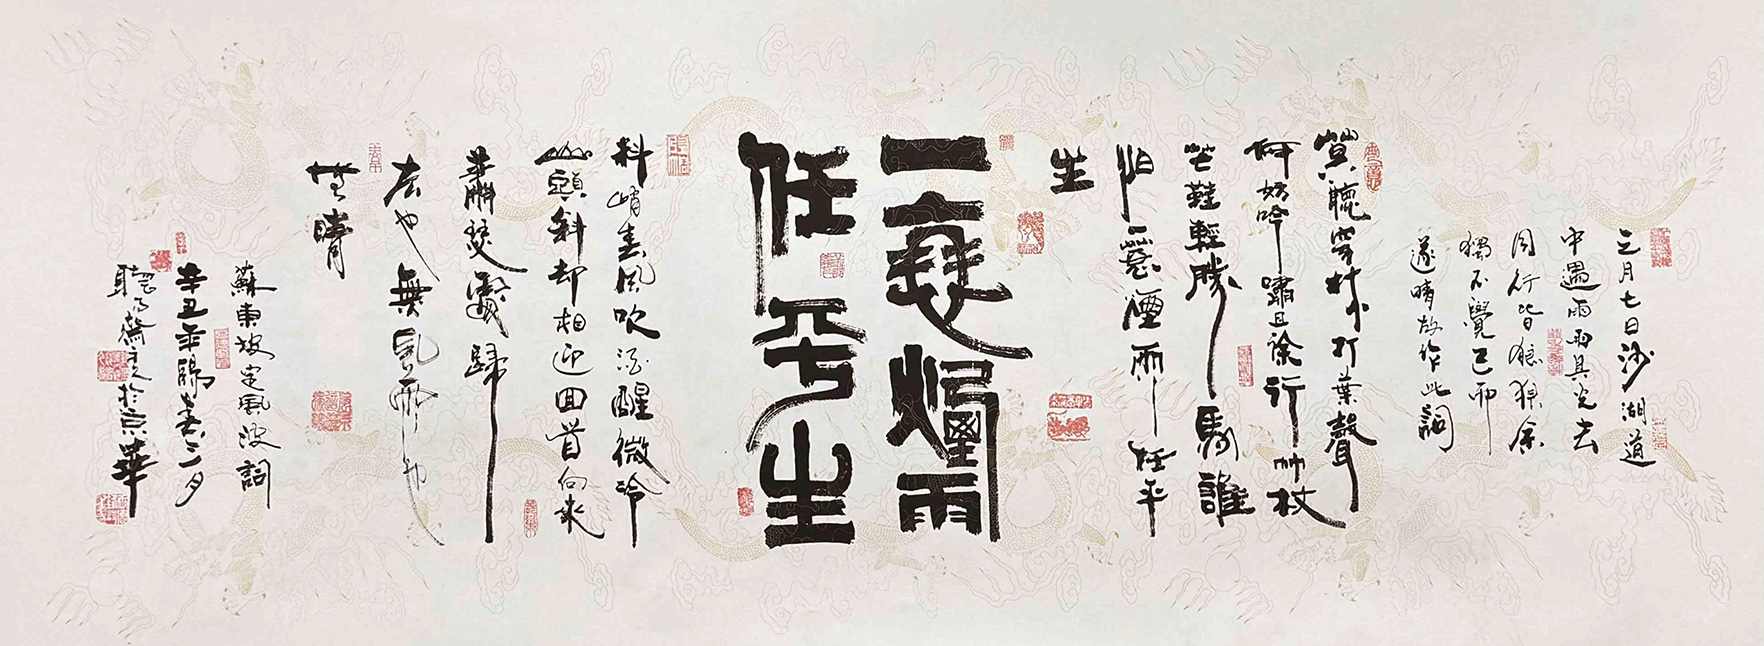 三月七日沙湖道
中遇雨雨具先去
同行皆狼狽余
獨不覺已而
遂晴故作此詞
莫聽穿林打葉聲
何妨吟嘯且徐行竹杖
芒鞋輕勝馬誰
怕一蓑煙雨任平
生
一蓑煙雨
任平生
料峭春風吹酒醒微冷
山頭斜却相迎回首向來
蕭瑟處歸
去也無風雨也
無晴
蘇東坡定風波詞
辛丑年陽春二月
聽齋主於京華